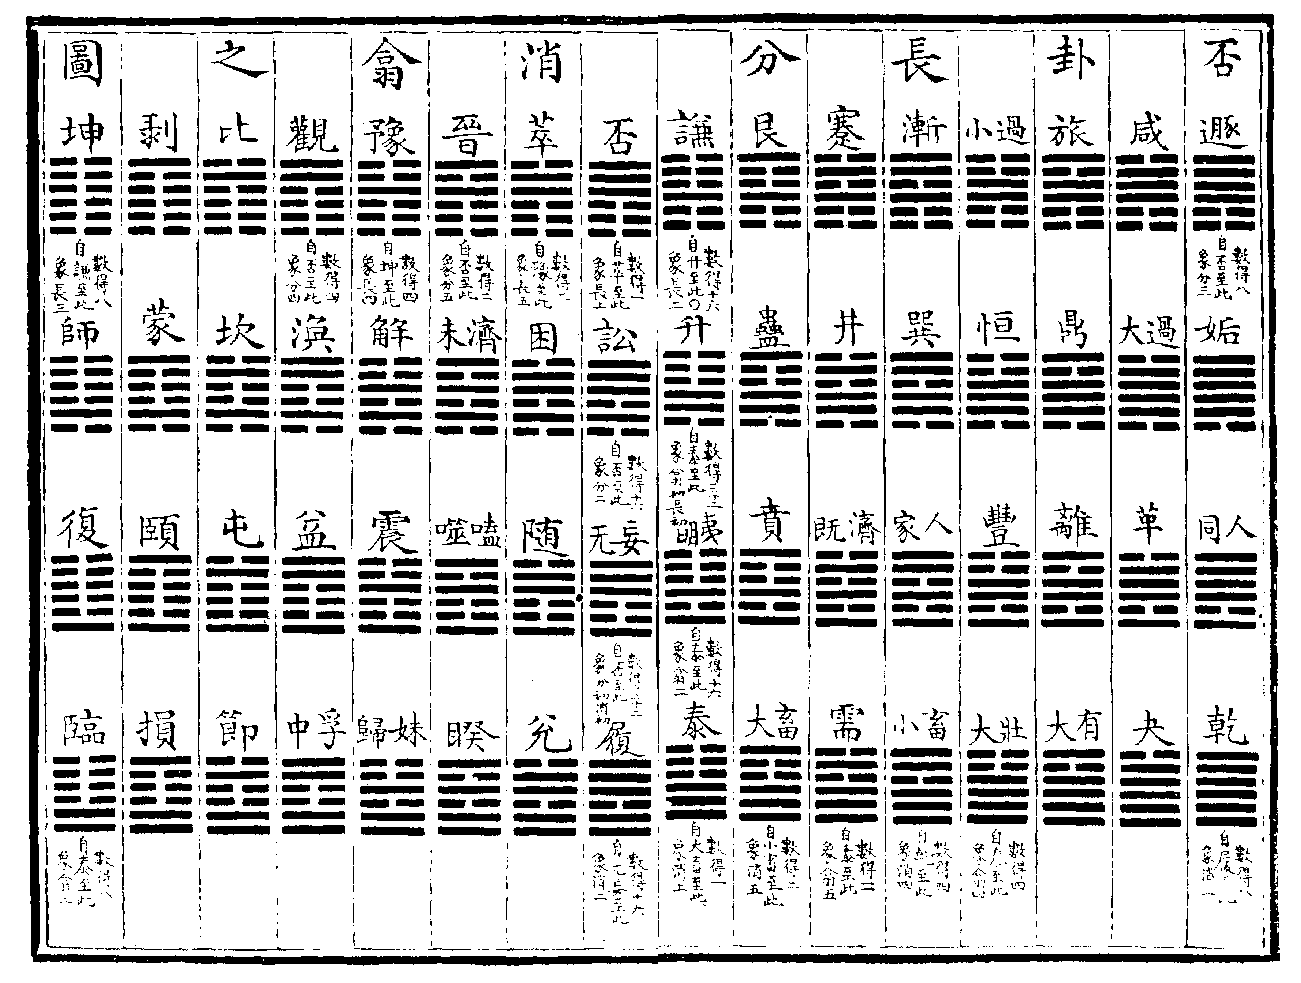 否卦長分消翕之圖
遯 咸 旅 小過 漸 蹇 艮 謙 否 萃 晉 豫 觀 比 剥 坤
數得八
自否至此
象分三
數得十六
自升至此
象長二
數得一
自萃至此
象長上
數得二
自豫至此
象長五
數得二
自否至此
象分五
數得四
自坤至此
象長四
數得四
自否至此
象分四
數得八
自謙至此
象長三
姤 大過 鼎 恒 巽 井 蠱 升 訟 困 未濟 解 渙 坎 蒙 師
數得三十二
自泰至此
象翕初長初
數得十六
自否至此
象分二
同人 革 離 豐 家人 既濟 賁 明夷 无妄 随 噬嗑 震 益 屯 頤 復
數得十六
自泰至此
象翕二
數得三十二
自否至此
象分初消初
乾 夬 大有 大壯 小畜 需 大畜 泰 履 兌 睽 歸妹 中孚 節 損 臨
數得八
象消
數得四
至此
數得四
至此
象消四
數得二
自泰至此
象翕五
數得二
自小畜至此
象消五
數得一
自大畜至此
象消上
數得十六
自无妄至此
象消二
數得八
自泰至此
象翕